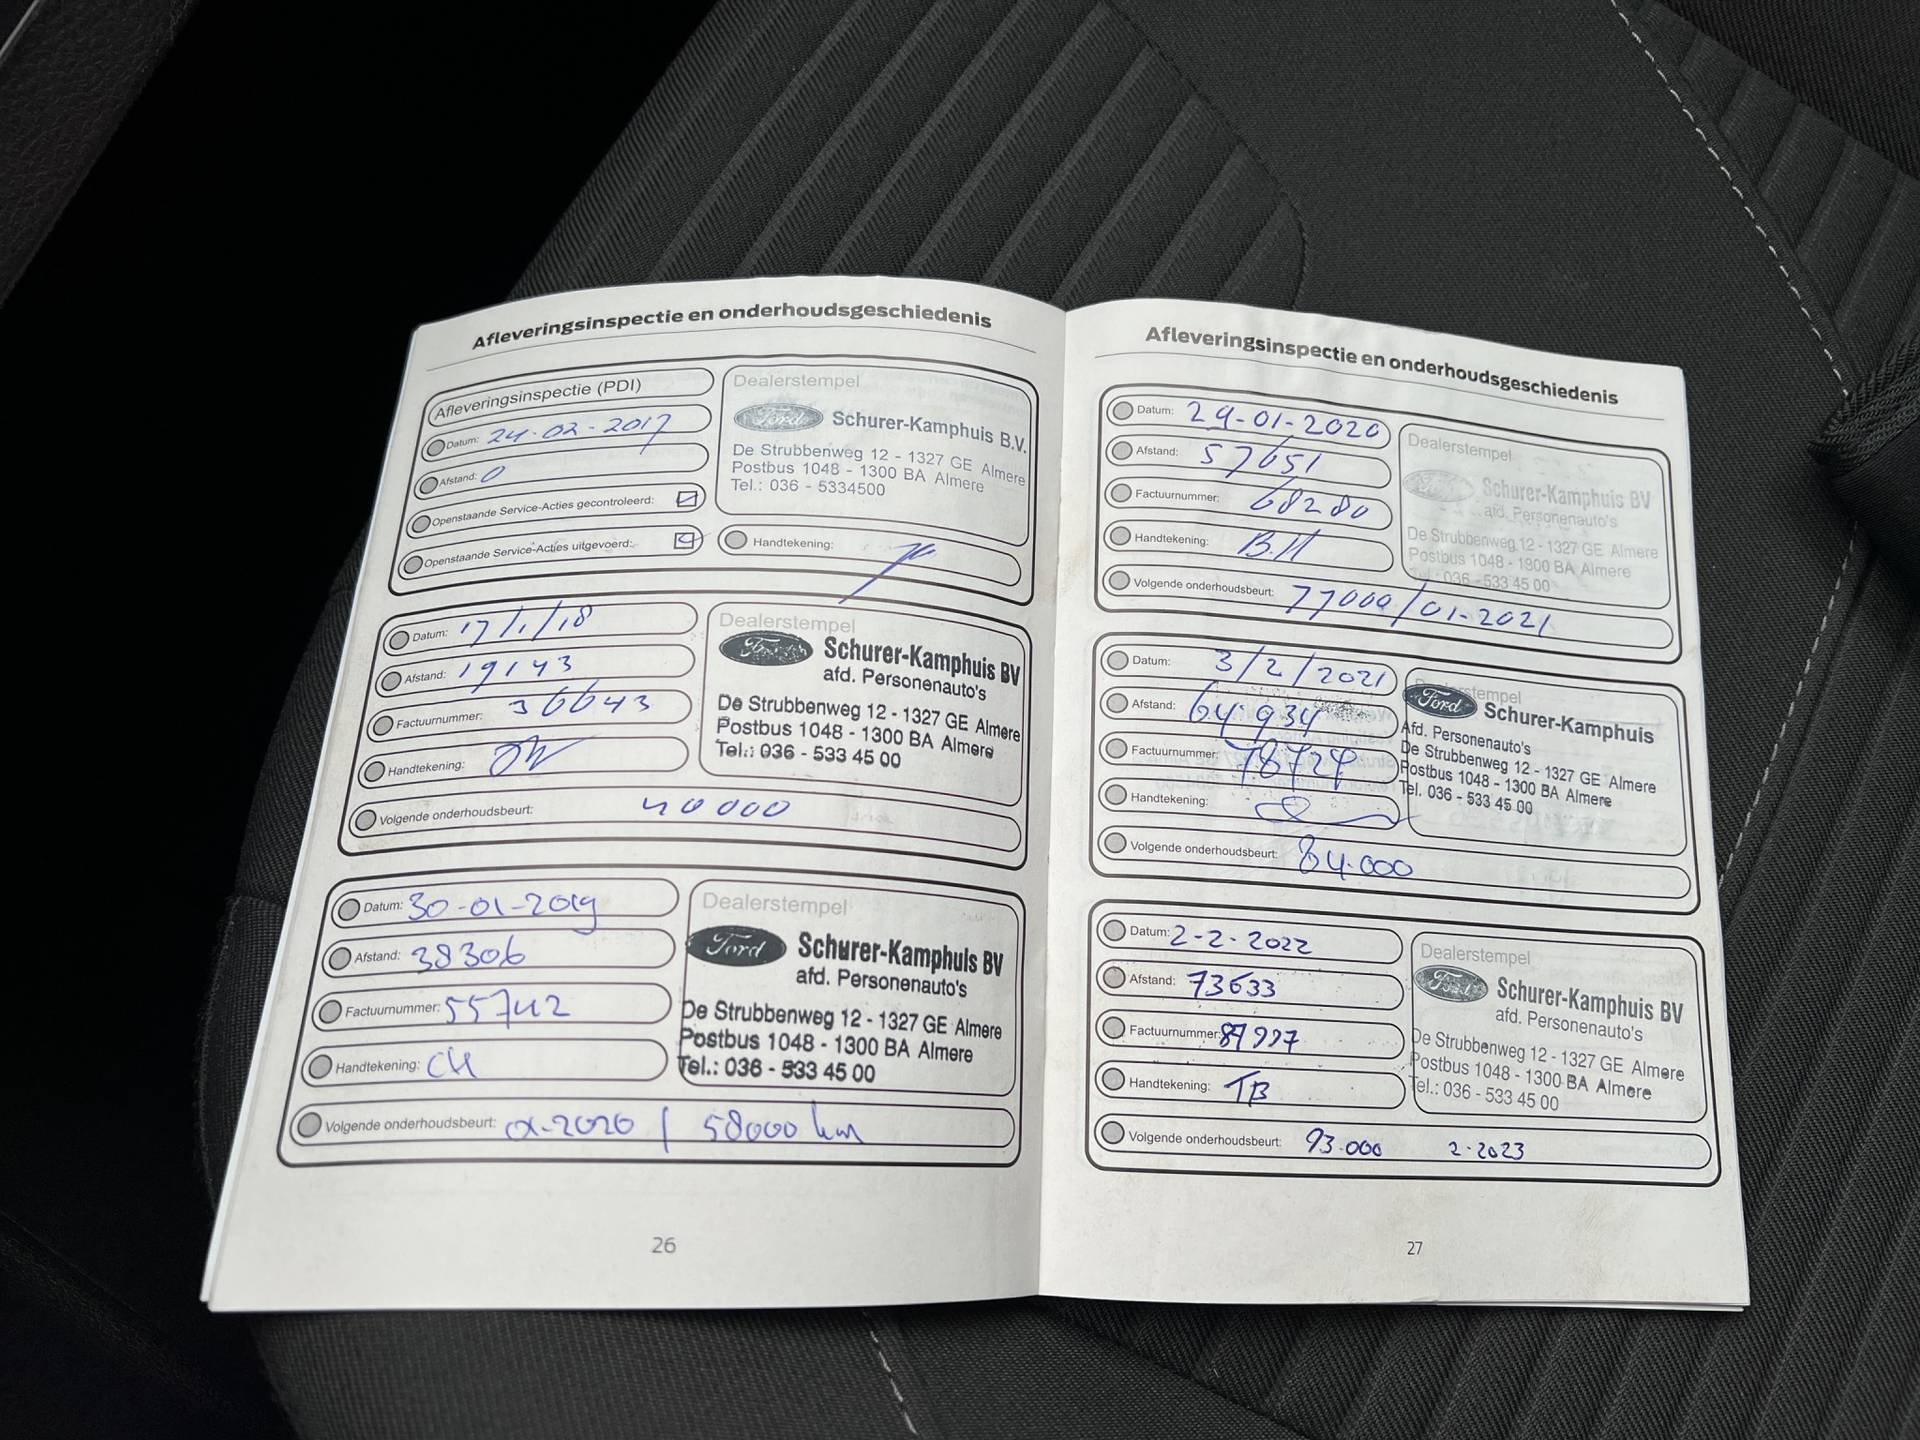 Afleveringsinspectie en onderhoudsgeschiedenis
Afleveringsinspectie (PDI)
Datum: 24-02-2017
Afstand: 0
Openstaande Service-Acties gecontroleerd:
Openstaande Service-Acties uitgevoerd:
Dealerstempel
Ford Schurer-Kamphuis B.V.
De Strubbenweg 12 - 1327 GE Almere
Postbus 1048 - 1300 BA Almere
Tel.: 036 - 5334500
Handtekening:
Datum: 17/1/18
Afstand: 19143
Factuurnummer: 36643
Handtekening:
Volgende onderhoudsbeurt: 40000
Dealerstempel
Ford Schurer-Kamphuis BV
afd. Personenauto's
De Strubbenweg 12 - 1327 GE Almere
Postbus 1048 - 1300 BA Almere
Tel.: 036 - 533 45 00
Datum: 30-01-2019
Afstand: 38306
Factuurnummer: 55742
Handtekening: CH
Volgende onderhoudsbeurt: 01-2020 / 58000 km
Dealerstempel
Ford Schurer-Kamphuis BV
afd. Personenauto's
De Strubbenweg 12 - 1327 GE Almere
Postbus 1048 - 1300 BA Almere
Tel.: 036 - 533 45 00
26
Afleveringsinspectie en onderhoudsgeschiedenis
Datum: 29-01-2020
Afstand: 57651
Factuurnummer: 68280
Handtekening: B.H
Volgende onderhoudsbeurt: 77000/01-2021
Dealerstempel
Schurer-Kamphuis BV
afd. Personenauto's
De Strubbenweg 12 - 1327 GE Almere
Postbus 1048 - 1300 BA Almere
Tel.: 036 - 533 45 00
Datum: 3/2/2021
Afstand: 64.934
Factuurnummer: 78724
Handtekening:
Volgende onderhoudsbeurt: 84.000
Dealerstempel
Ford Schurer-Kamphuis
Afd. Personenauto's
De Strubbenweg 12 - 1327 GE Almere
Postbus 1048 - 1300 BA Almere
Tel. 036 - 533 45 00
Datum: 2-2-2022
Afstand: 73633
Factuurnummer: 87997
Handtekening: TB
Volgende onderhoudsbeurt: 93.000 2-2023
Dealerstempel
Ford Schurer-Kamphuis BV
afd. Personenauto's
De Strubbenweg 12 - 1327 GE Almere
Postbus 1048 - 1300 BA Almere
Tel.: 036 - 533 45 00
27